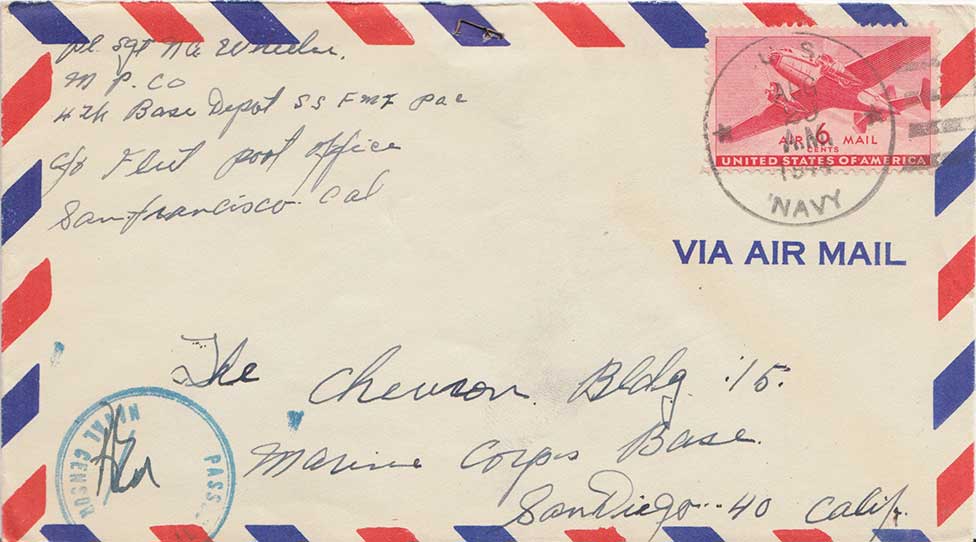 Pl. Sgt M A Wheeler.
M P. Co
4th Base Depot S S F M F Pac
c/o Fleet Post Office
San Francisco. Cal
U. S.
AUG
A.M.
NAVY
AIR 6 MAIL
CENTS
UNITED STATES OF AMERICA
VIA AIR MAIL
The Chevron Bldg. 15.
Marine Corps Base.
San Diego.. 40 Calif.
PASS
NAVAL CENSOR